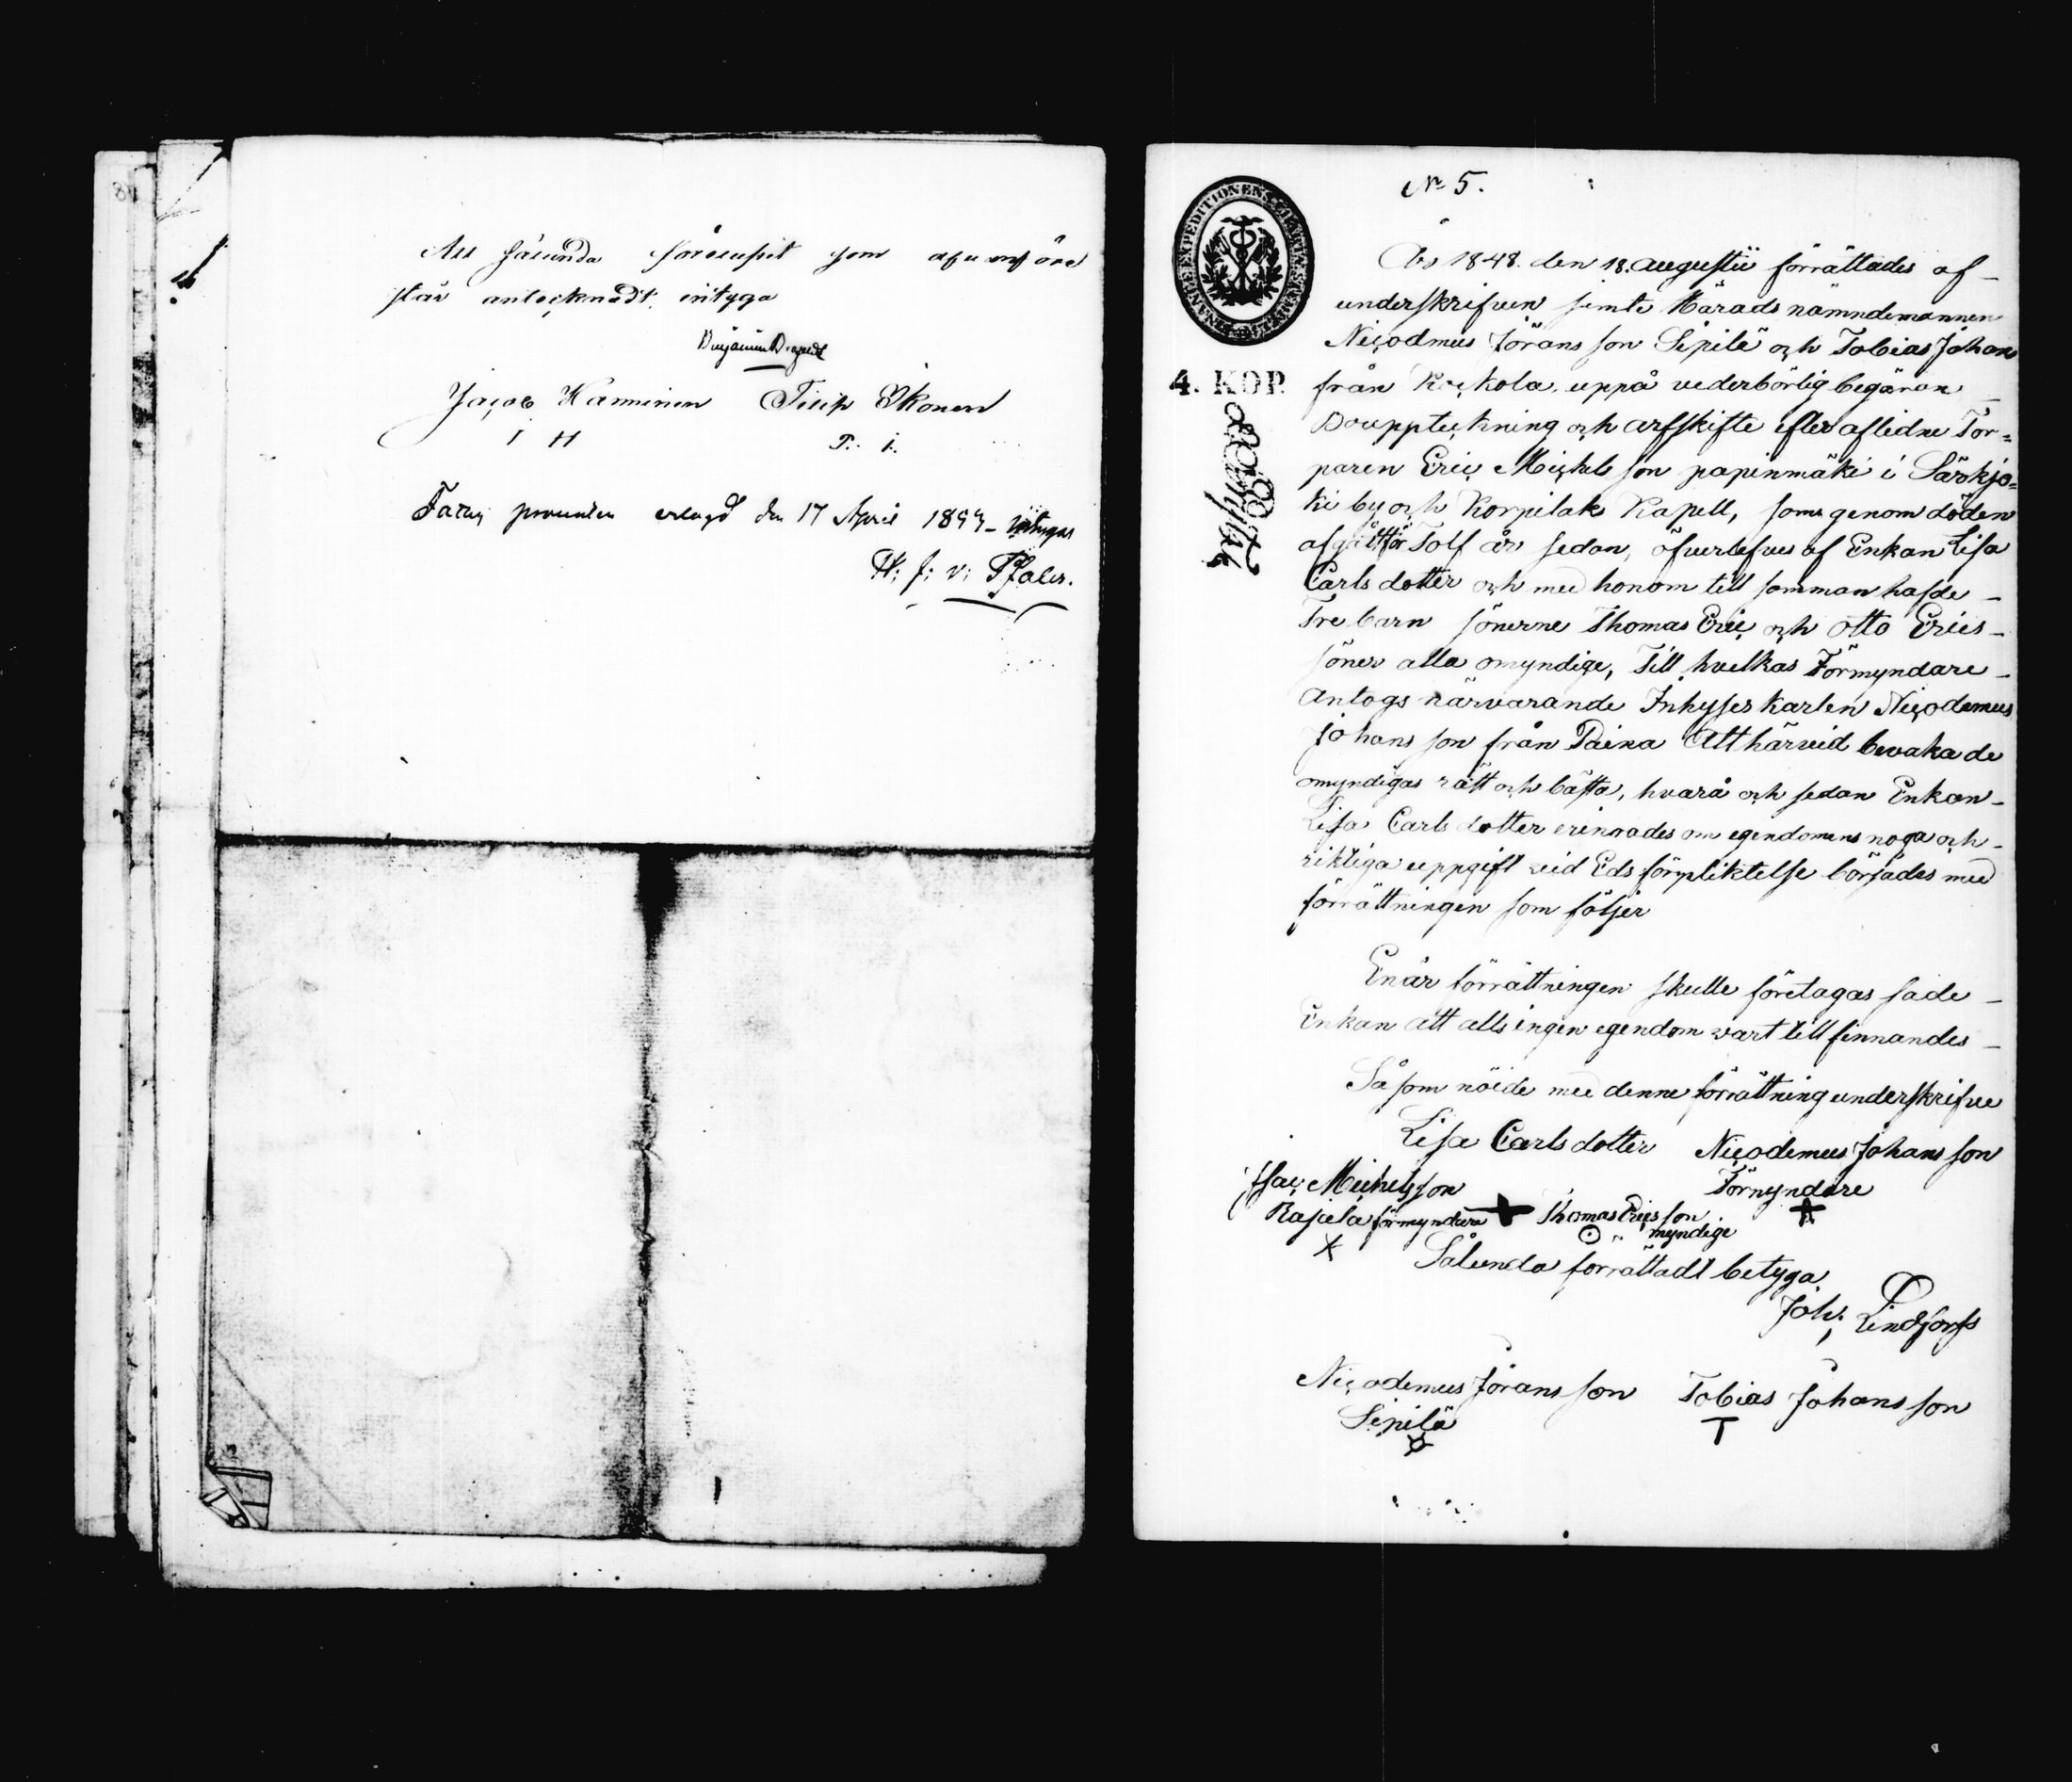 Att sålunda förelupit som ofvanföre
står antecknadt, intyga
Jacob Hanninen Filip Ikonen
I H P. i.
Fattig procenten erlagd den 17 April 1849 intygar
H: f: v: Pfaler.
№ 5.
4. KOP.
År 1848. den 18. Augustii förrättades af
underskrifven jemte Härads nämndemannen
Niçodmus Jörans son Sipilä och Tobias Johans
från Kockola, uppå vederbörlig begäran
Bouppteckning och arfskifte efter aflidne Tor=
paren Eric Michels son papinmäki i Särkjo=
ki by och Korpilaks Kapell, som genom döden
afgått för Tolf år sedan, öfverlefves af Enkan Lisa
Carls dotter och med honom till samman hafde
Tre barn sönerne Thomas Eric och Otto Erics
söner alla omyndige, Till hvilkas Förmyndare
Antogs närvarande Inhyses karlen Niçodemus
Johans son från Paina Att härvid bevaka de
omyndigas rätt och bästa, hvarå och sedan Enkan
Lisa Carls dotter erinrades om egendomens noga och
riktiga uppgift vid Eds förpliktelse börjades med
förrättningen som följer
Enär förrättningen skulle företagas sade
Enkan att alls ingen egendom vart till finnandes
Så som nöide med denne förrättning underskrifve
Lisa Carls dotter Niçodemus Johans son
Isac Michels son Förmyndare
Rajala förmyndare Thomas Erics son
myndige
Sålunda förrättadt betyga
Joh: Lindfors
Niçodemus Jörans son Tobias Johans son
Sipilä T